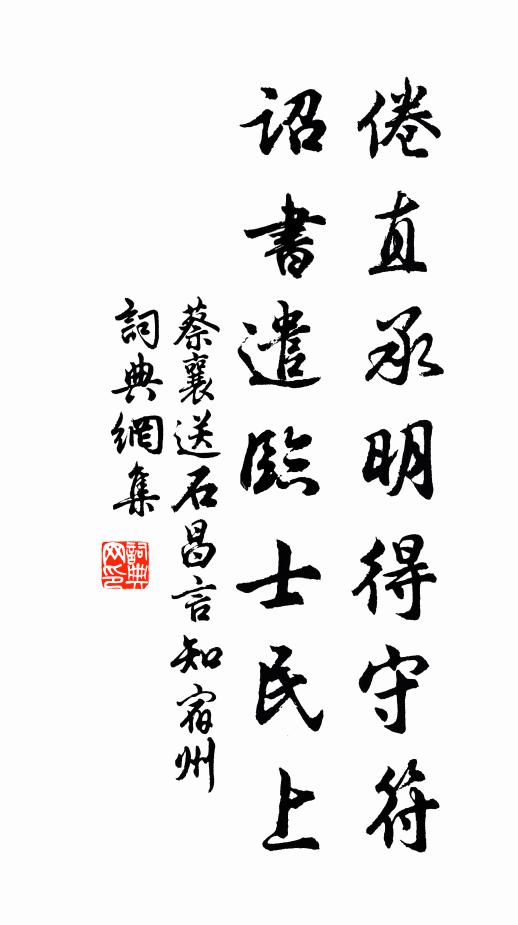 倦直承明得守符
詔書遣臨士民上
蔡襄送石昌言知宿州
詞典網集
詞典网印